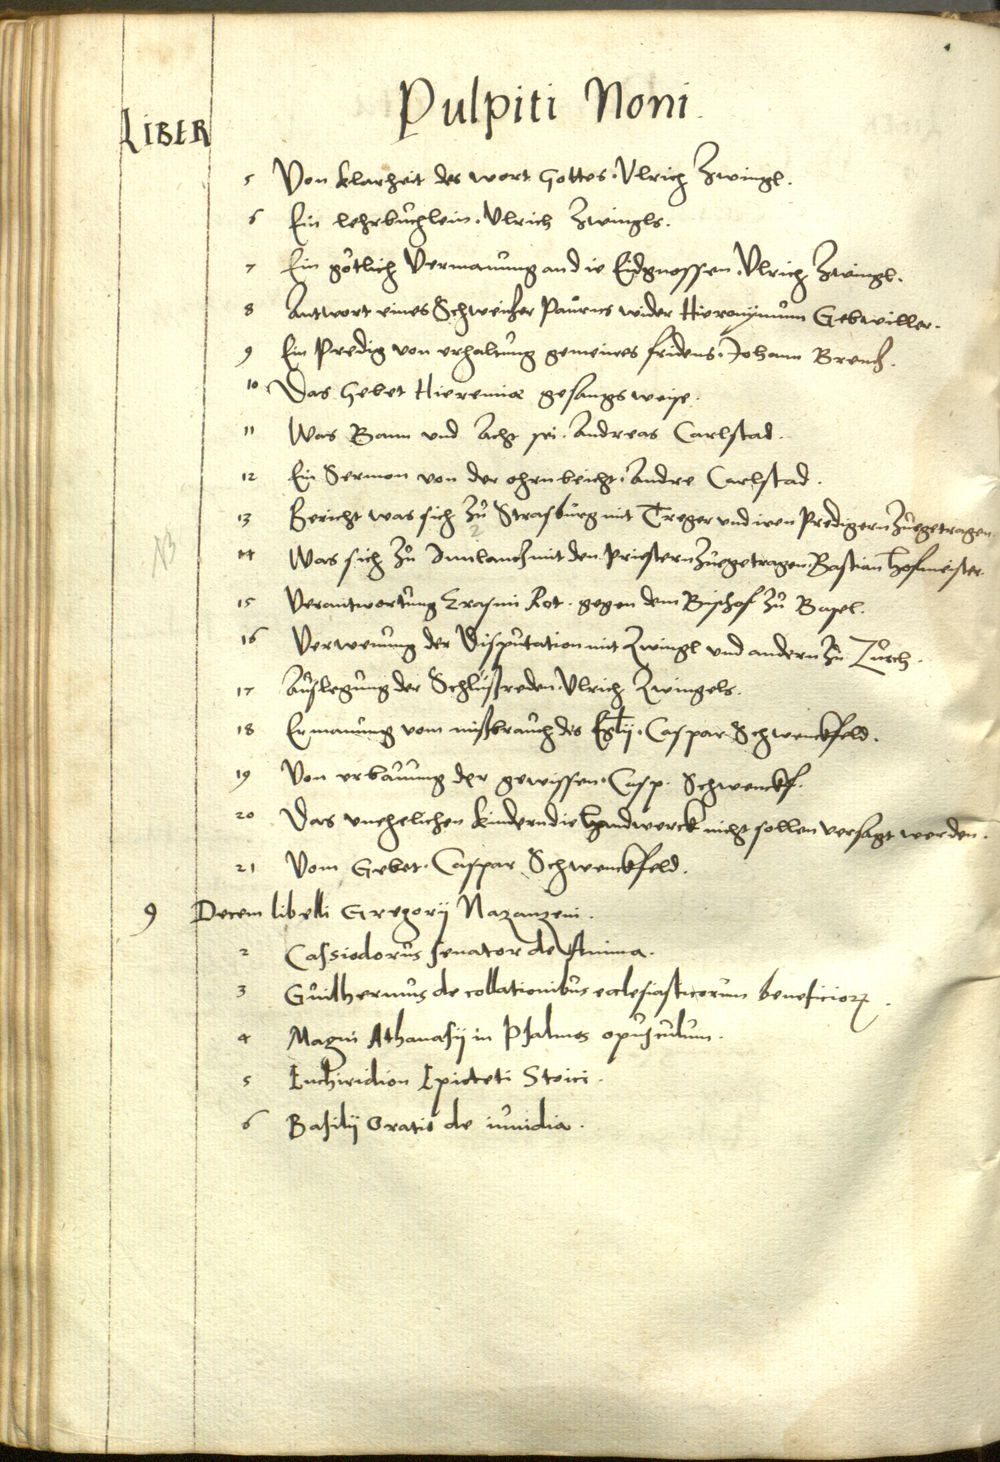 Pulpiti Noni.
LIBER
5 Von klarheit des wort Gottes. Vlrich Zwingl.
6 Ein lehrbuchlein. Vlrich Zwingls.
7 Ein götlich Vermanung an die Eidgnossen. Vlrich Zwingl.
8 Antwort eines Schweitzer Paurens wider Hieronymum Gebwiller.
9 Ein Predig von erhaltung gemeines fridens. Johann Brentz.
10 Das Gebet Hieremiæ gesangs weise.
11 Was Bann und Acht sei. Andreas Carlstad.
12 Ein Sermon von der ohrnbeicht. Andre Carlstad.
13 Bericht was sich zů Strasburg mit Treger und iren Predigern zůgetragen.
14 Was sich zů mit den Priestern zůgetragen. Bastian Hofmeister
15 Verantwortung Erasmi Rot. gegen dem Bischof zů Basel.
16 der Disputation mit Zwingl und andern zů Zůrch.
17 Auslegung der Schlußreden Vlrich Zwingels.
18 Ermanung vom mißbrauch des Eglij. Caspar Schwenckfeld.
19 Von erbauung der gewissen. Casp. Schwenckf.
20 Das unehelichen kindern die Handwerck nicht sollen versagt werden.
21 Vom Gebet. Caspar Schwenckfeld.
9 Decem libelli Gregorij Nazanzeni.
2 Cassiodorus senator de Anima.
3 Guilhermus de collationibus ecclesiasticorum beneficiorꝝ.
4 Magni Athanasij in Psalmos opusculum.
5 Enchiridion Epicteti Stoici.
6 Basilij Oratio de invidia.